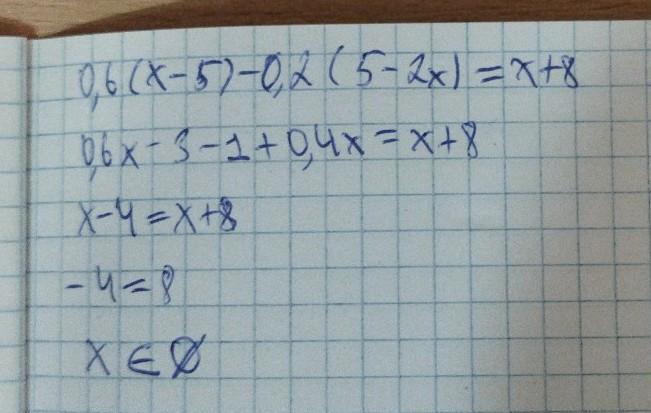 0,6(x-5)-0,2(5-2x)=x+8
0,6x-3-1+0,4x=x+8
x-4=x+8
-4=8
x∈∅